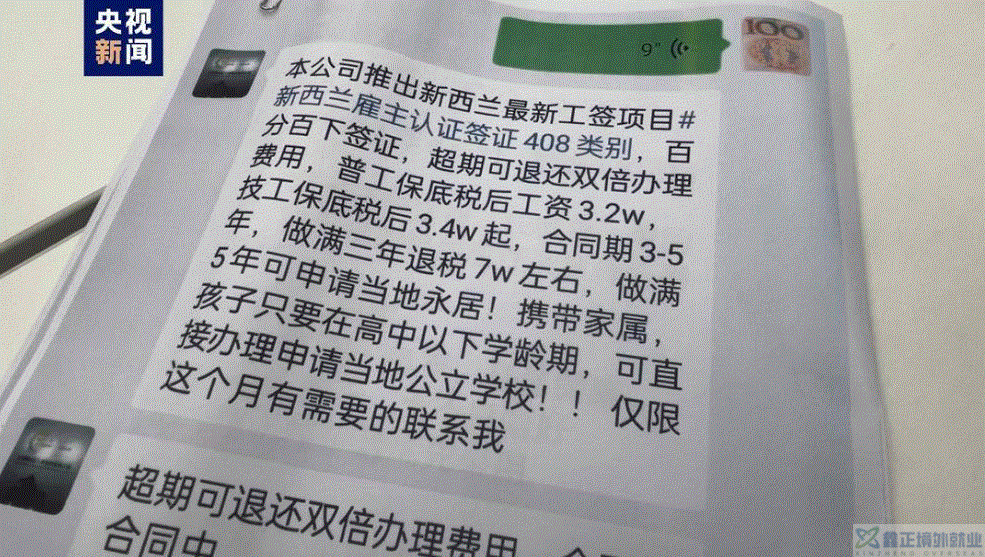 央视
新闻
100
9"
本公司推出新西兰最新工签项目#
新西兰雇主认证签证408类别，百
分百下签证，超期可退还双倍办理
费用，普工保底税后工资3.2w，
技工保底税后3.4w起，合同期3-5
年，做满三年退税7w左右，做满
5年可申请当地永居！携带家属，
孩子只要在高中以下学龄期，可直
接办理申请当地公立学校！！仅限
这个月有需要的联系我
超期可退还双倍办理费用
合同中
鑫正境外就业